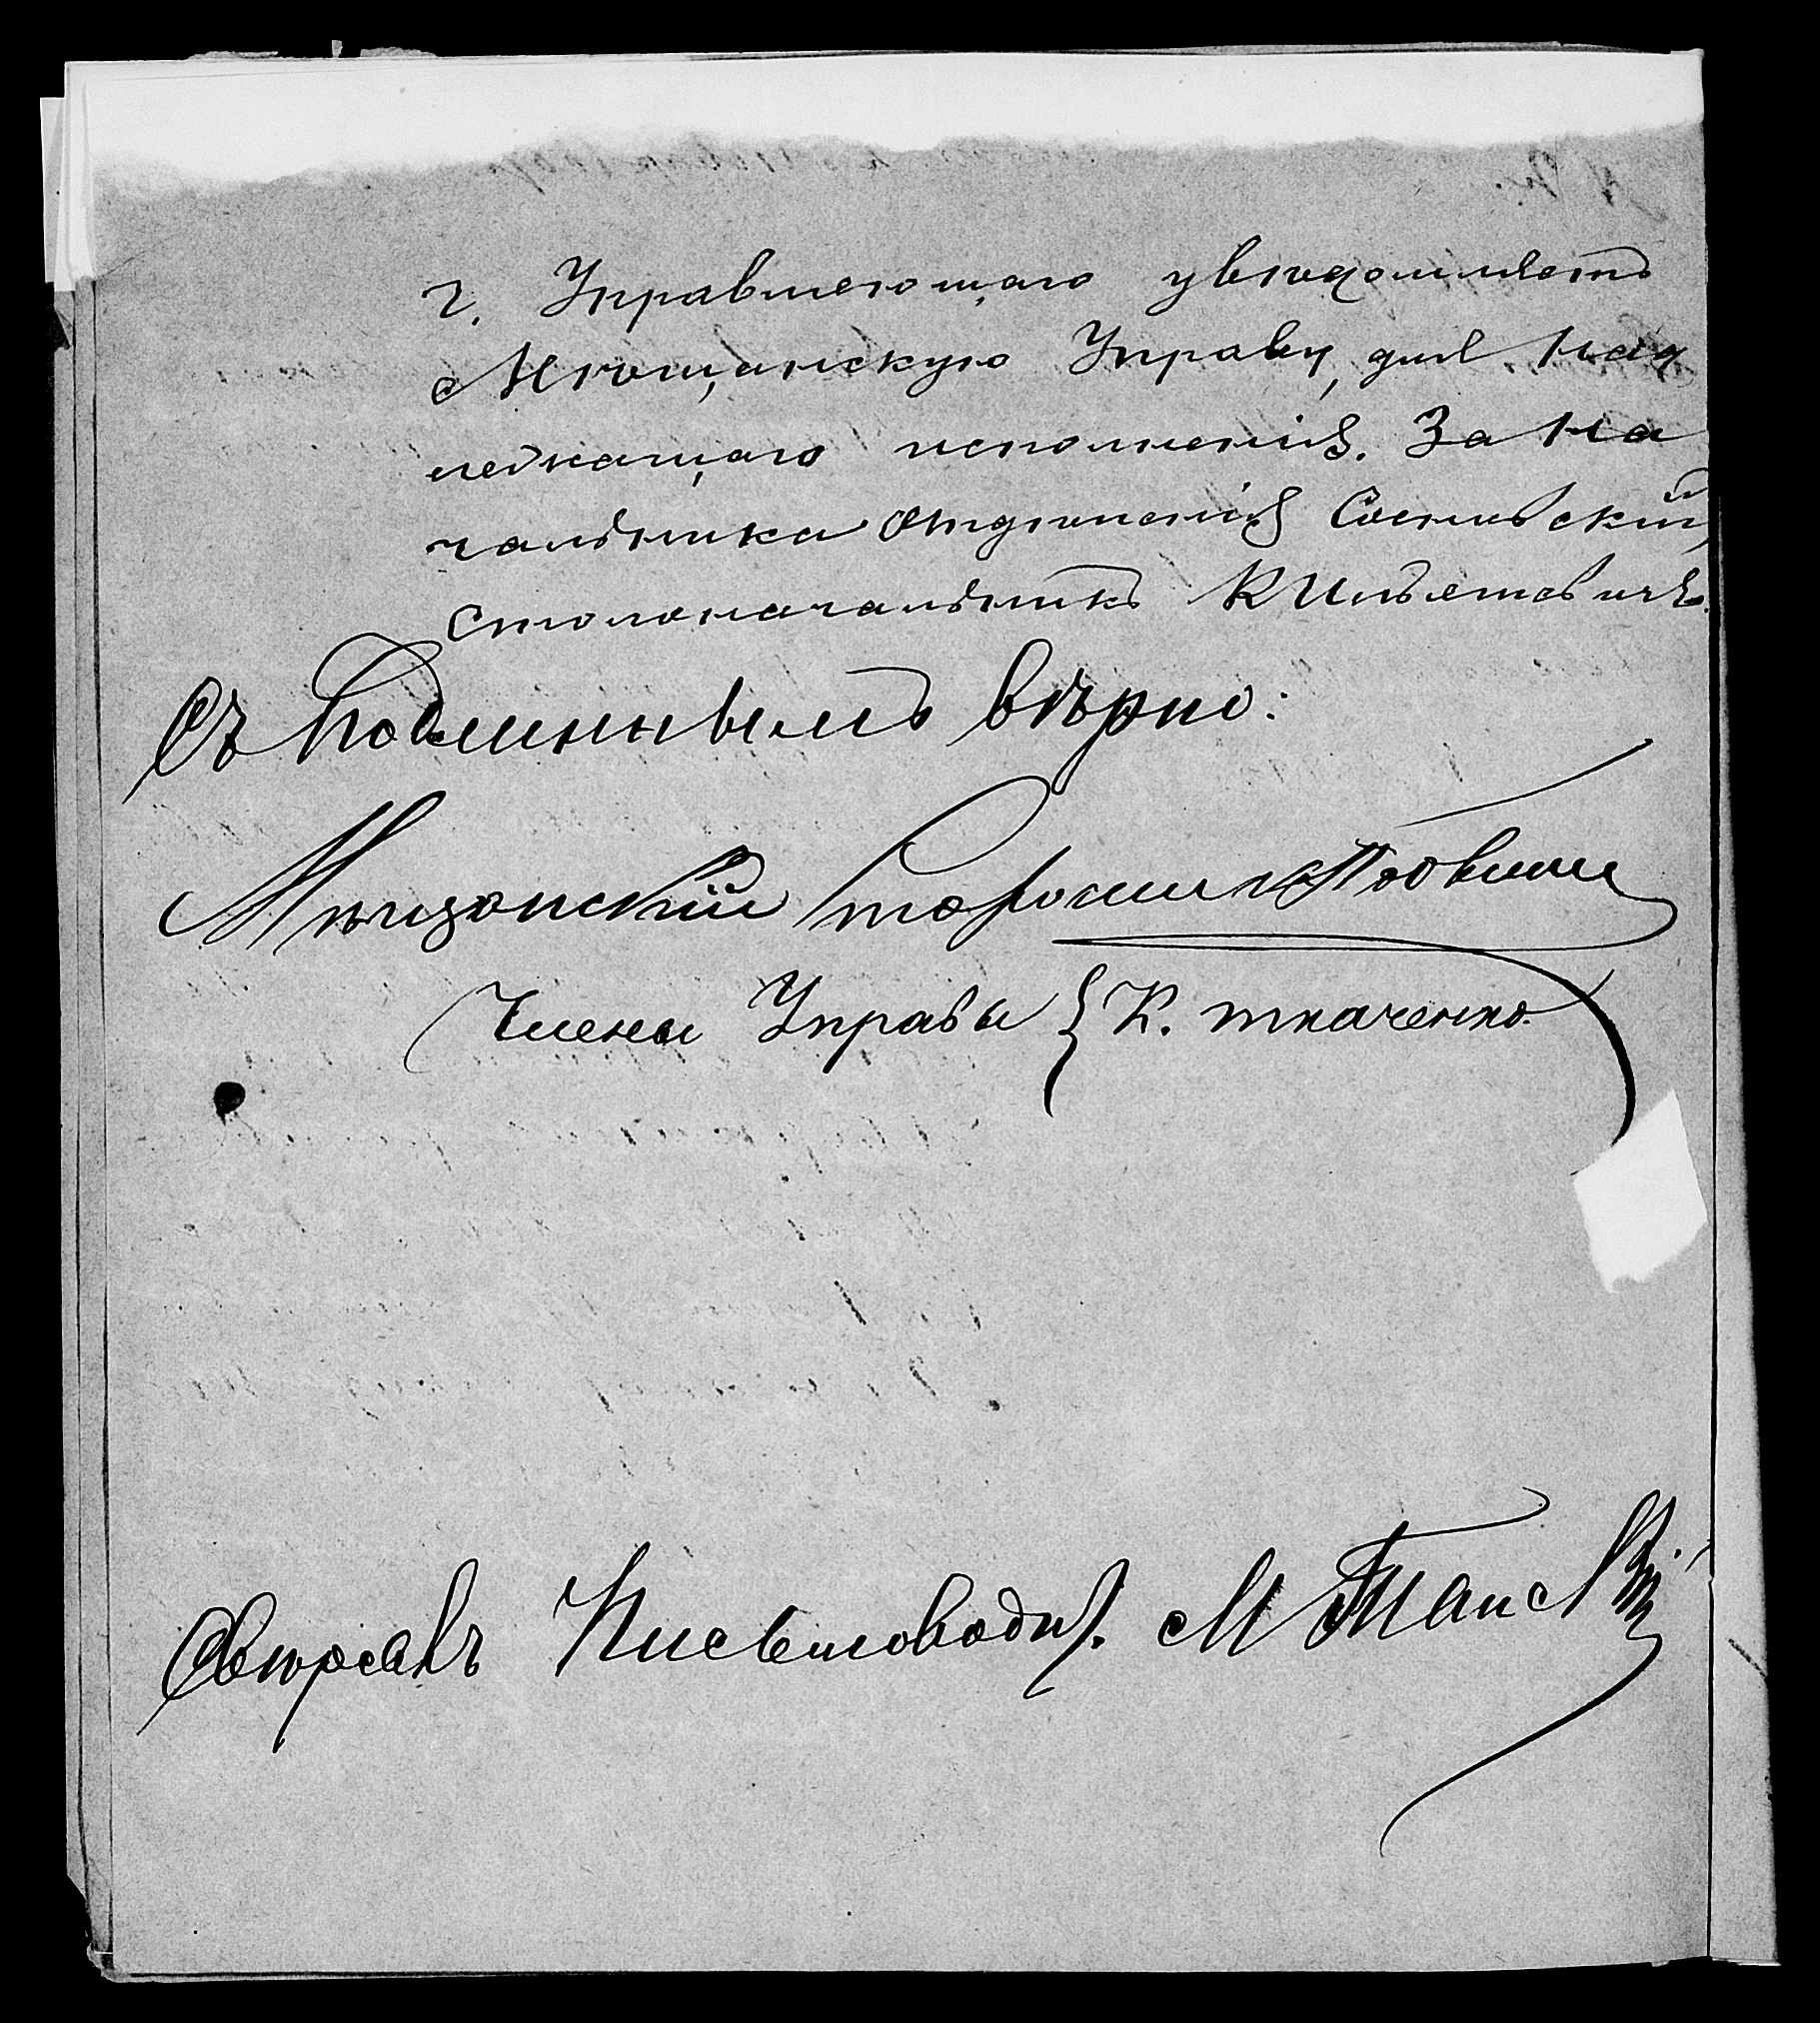 г. Управляющаго увѣдомляетъ
Мѣщанскую Управу, для над
лежащаго исполненія. За На
чальника Отдѣленія
Столоначальникъ
Съ подлиннымъ вѣрно:
Мѣщанскій Староста
Члены Управы { К. Ткаченко
Свѣрялъ Письмоводит.